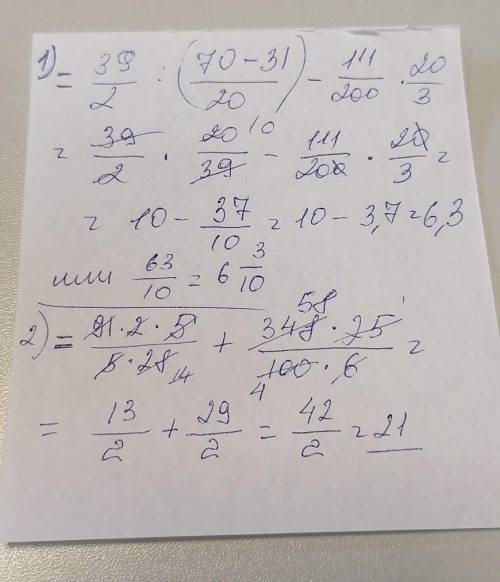 1) = 39/2 : (70-31/20) - 111/200 · 20/3
= 39/2 · 20/39 10 - 111/200 · 20/3 =
= 10 - 37/10 = 10 - 3,7 = 6,3
или 63/10 = 6 3/10
2) = 91·2·5/5·28 14 + 348 58 · 25/100 4 · 6 =
= 13/2 + 29/2 = 42/2 = 21